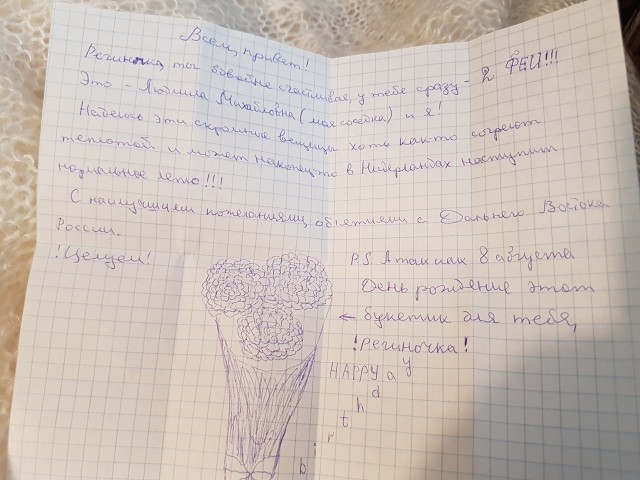 Всем, привет!
Региночка, ты вдвойне счастливая, у тебя сразу - 2 ФЕИ!!!
Это - Людмила Михайловна (моя соседка) и я!
Надеюсь эти скромные вещицы хоть как-то согреют
теплотой и может наконец-то в Нидерландах наступит
нормальное лето!!!
С наилучшими пожеланиями, объятиями с Дальнего Востока
России.
!Целуем!
P.S. А так как 8 августа
День рождение этот
← букетик для тебя,
!Региночка!
HAPPY birthday